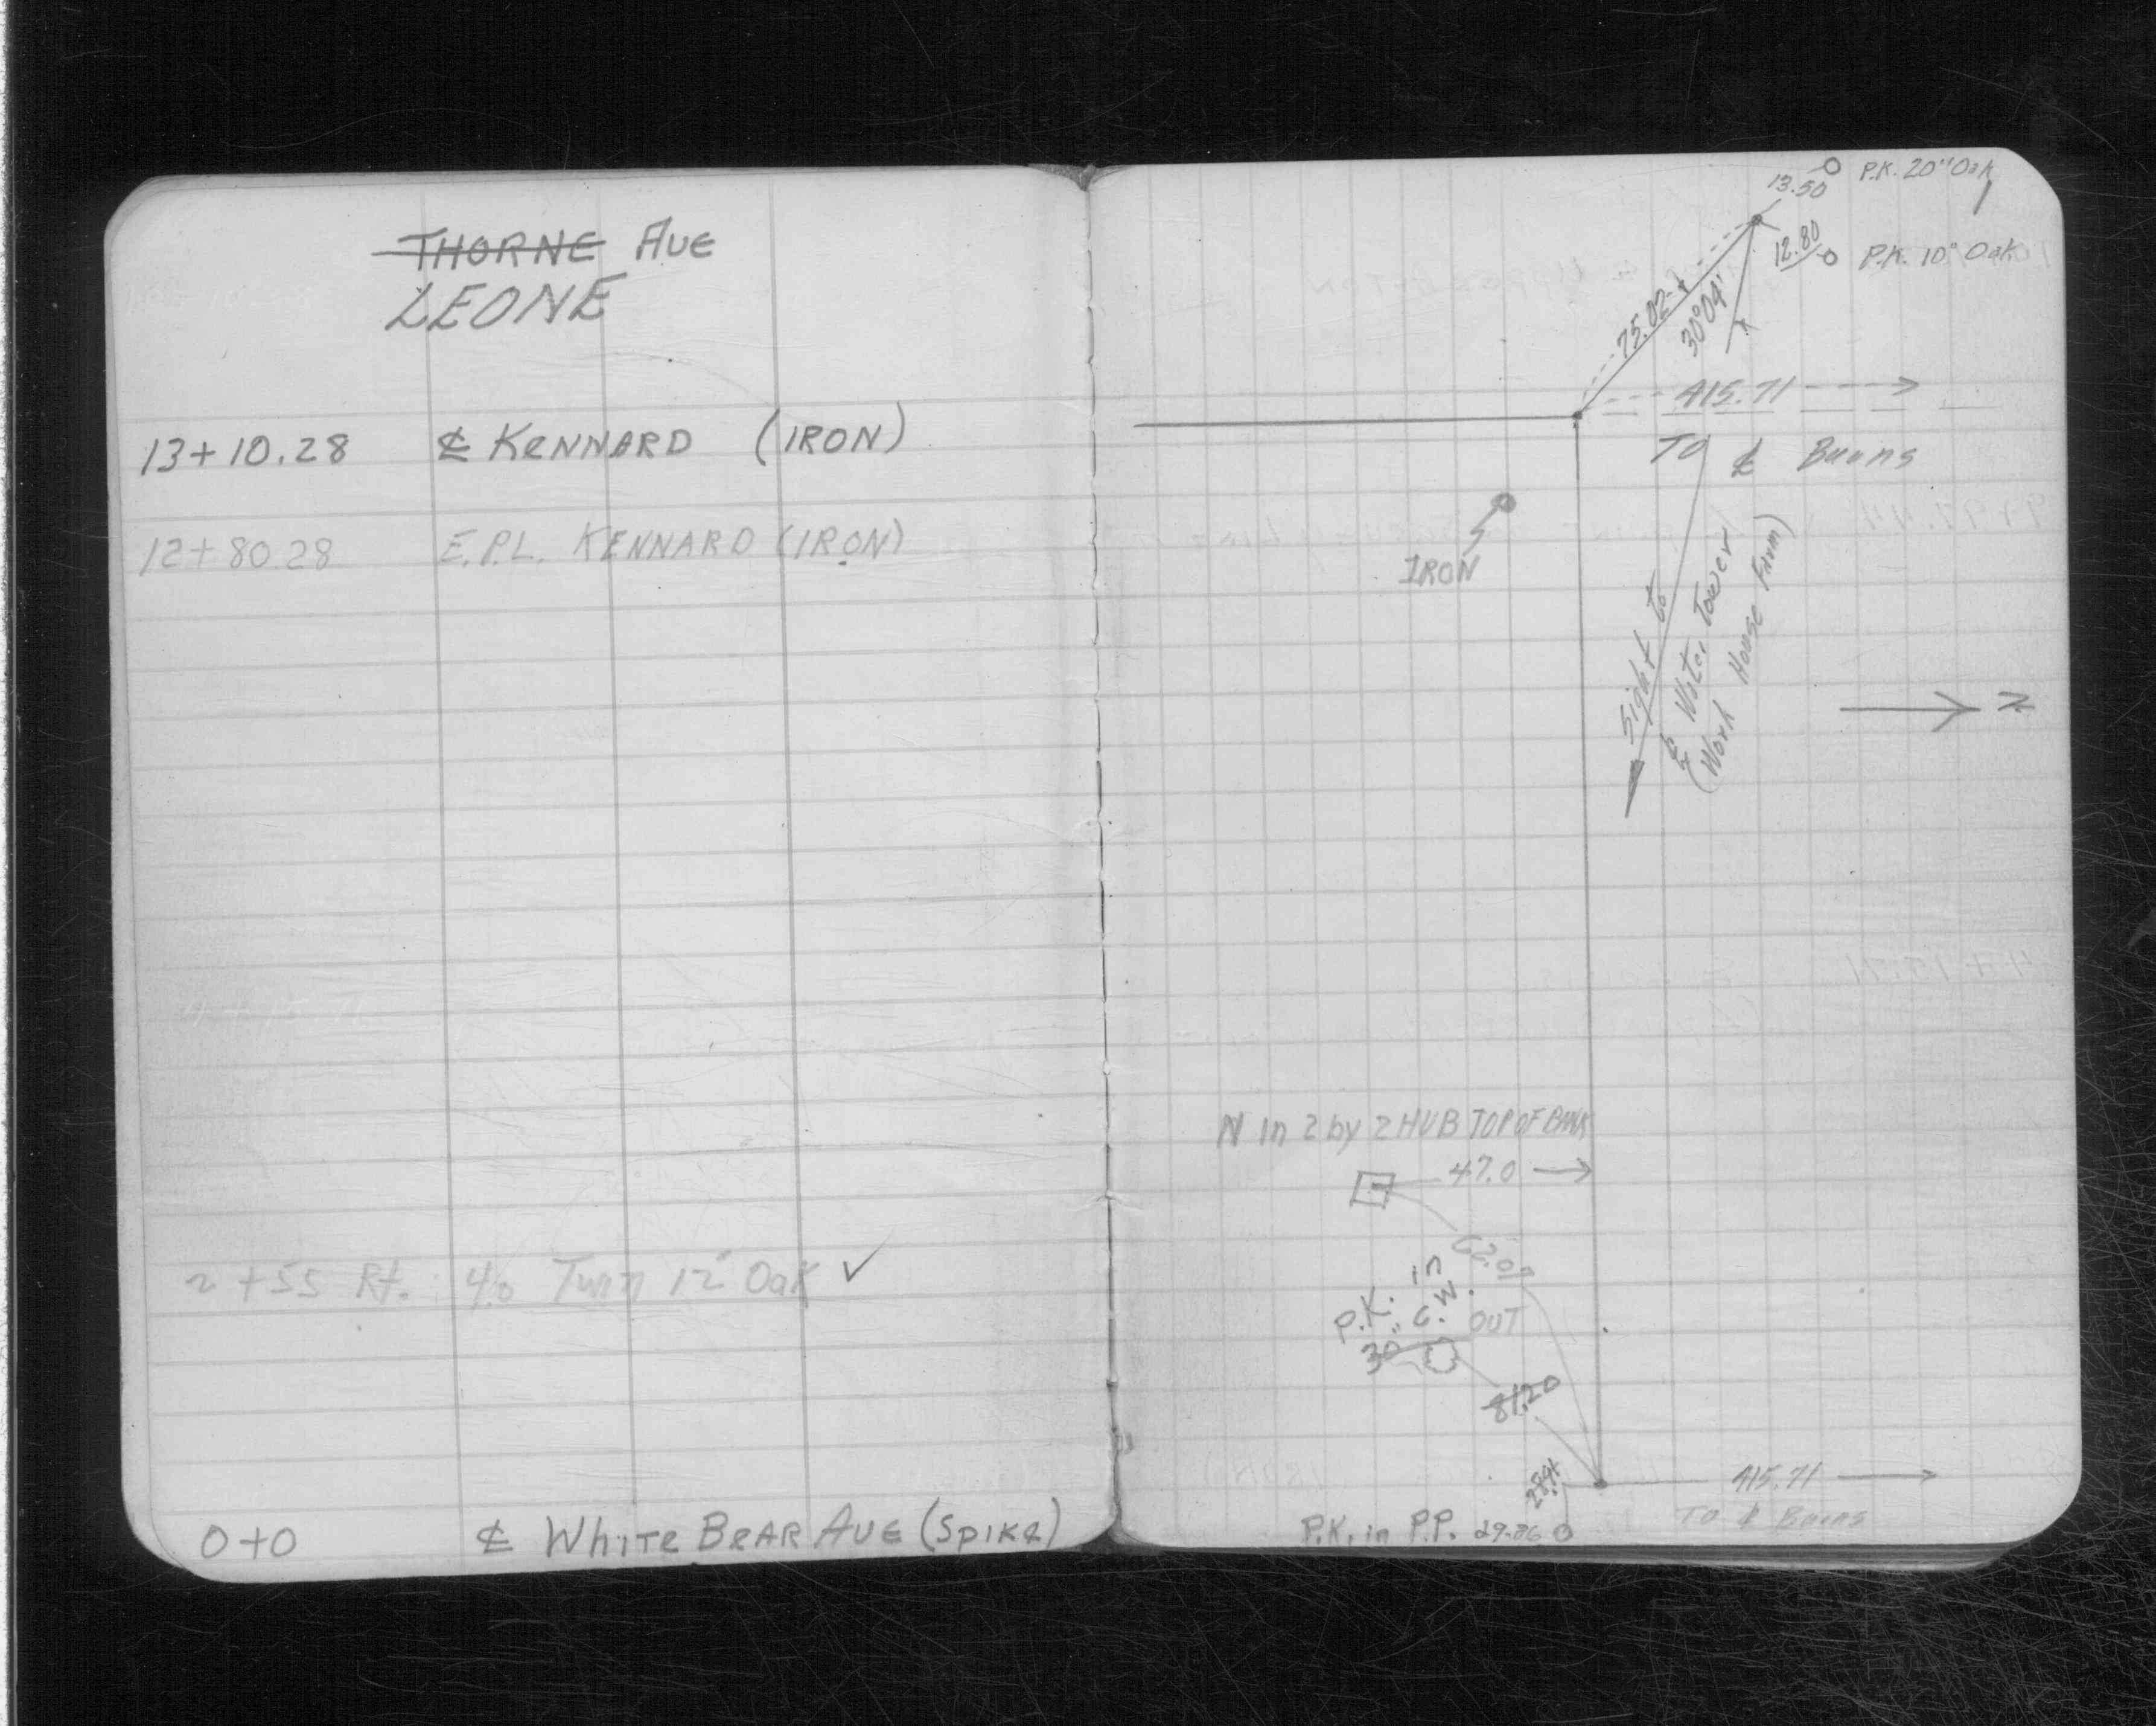 THORNE AUE
LEONE
13+10.28 ℄ KENNARD (IRON)
12+80.28 E.P.L. KENNARD (IRON)
2+55 Rt. 40 Twin 12" Oak ✓
0+0 ℄ WhiTE BEAR AUE (SpIKE)
1
13.50 P.K. 20" Oak
12.80 P.K. 10" Oak
75.02
30°04'
415.71
TO ℄ Buuns
IRON
Sight to
℄ Water Tower
(Work House Farm)
N
N in 2 by 2 HUB TOP OF BANK
47.0
62.00
P.K. in
30" C.W.
OUT
81.20
415.71
TO ℄ Buuns
P.K. in P.P. 29.86